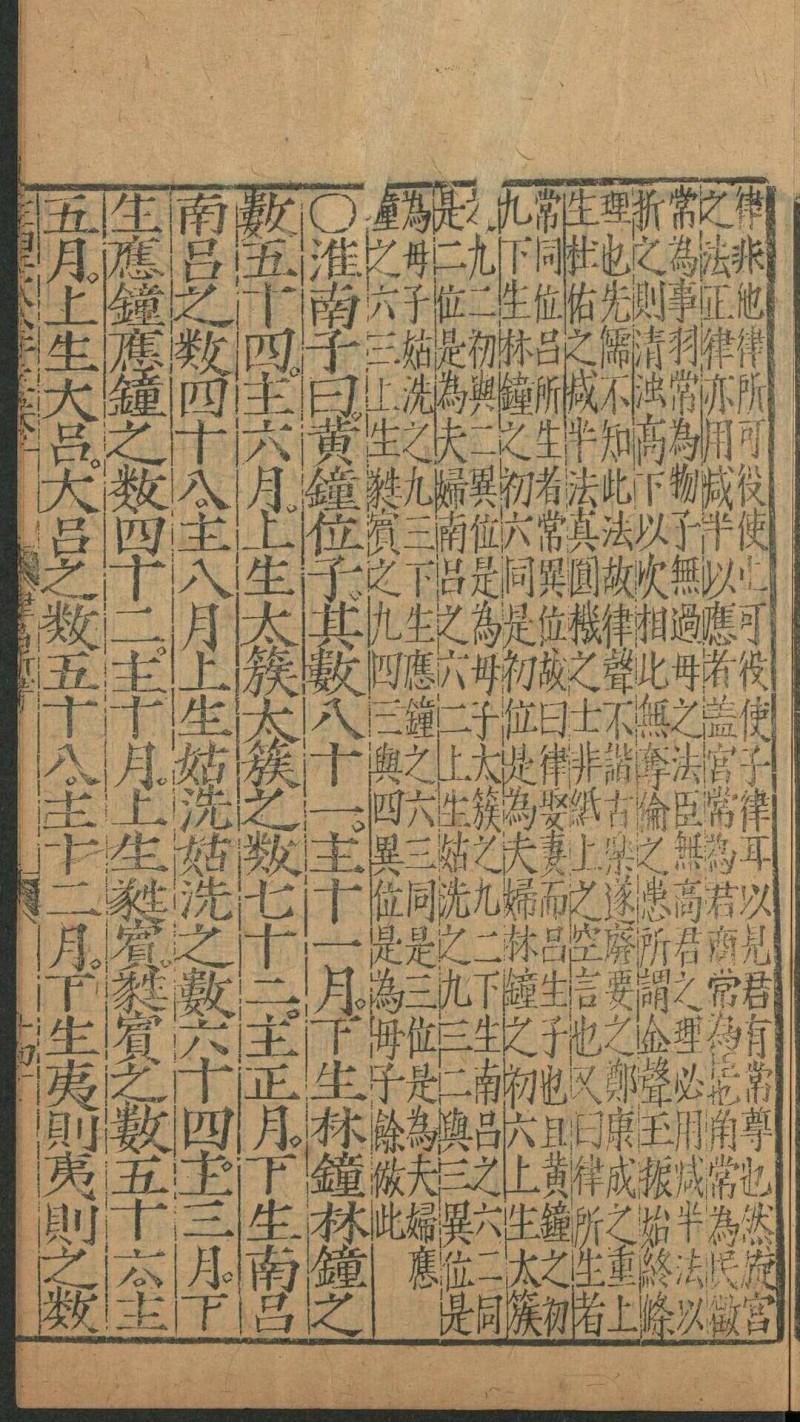 律非他律所可役使止可役使子律耳以見君有常尊也然旋宮
之法正律亦用减半以應若盖宮常為君商常為臣也角常為民徵
常為事羽常為物子無過母之法臣無高君之理必用减半法以
折之則清濁高下以次相此無奪倫之患所謂金聲玉振始終條
理也先儒不知此法故律聲不諧古樂遂廢要之鄭康成之重上
生杜佑之减半法真圓機之士非紙上之空言也又曰律所生者
常同位呂所生者常異位故曰律娶妻而呂生子也且黃鐘之初
九下生林鐘之初六同是初位是為夫婦林鐘之初六上生太簇
之九二初與二異位是為母子太簇之九二下生南呂之六二同
是二位是為夫婦南呂之六二上生姑洗之九三二與三異位是
為母子姑洗之九三下生應鐘之六三同是三位是為夫婦應
鐘之六三上生蕤賓之九四三與四異位是為母子餘倣此
〇淮南子曰。黃鐘位子、其數八十一。主十一月。下生林鐘林鐘之
數五十四。主六月。上生太簇太簇之数七十二。主正月。下生南呂
南呂之数四十八。主八月上生姑洗姑洗之數六十四。主三月。下
生應鐘應鐘之数四十二。主十月。上生蕤賓。蕤賓之數五十六。主
五月。上生大呂。大呂之数五十八。主十二月。下生夷則夷則之数